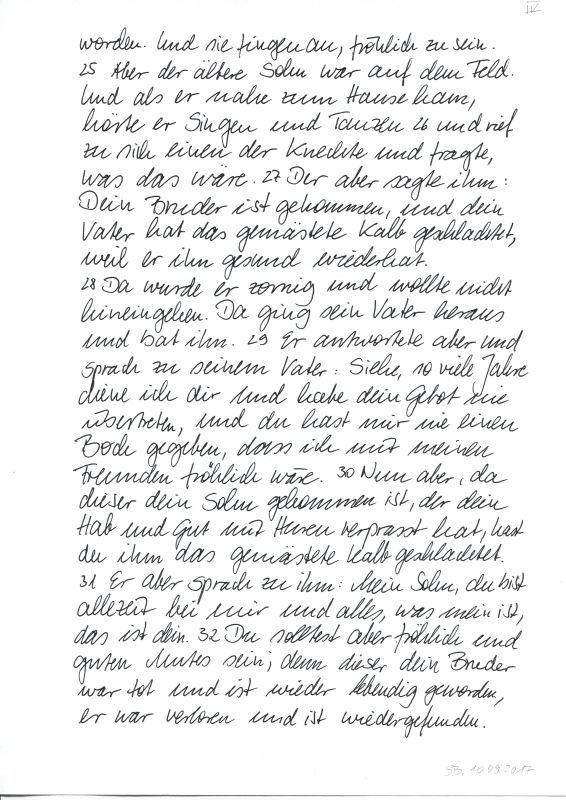 IV
worden. Und sie fingen an, fröhlich zu sein.
25 Aber der ältere Sohn war auf dem Feld.
Und als er nahe zum Hause kam,
hörte er Singen und Tanzen 26 und rief
zu sich einen der Knechte und fragte,
was das wäre. 27 Der aber sagte ihm:
Dein Bruder ist gekommen, und dein
Vater hat das gemästete Kalb geschlachtet,
weil er ihn gesund wiederhat.
28 Da wurde er zornig und wollte nicht
hineingehen. Da ging sein Vater heraus
und bat ihn. 29 Er antwortete aber und
sprach zu seinem Vater: Siehe, so viele Jahre
diene ich dir und habe dein Gebot nie
übertreten, und du hast mir nie einen
Bock gegeben, dass ich mit meinen
Freunden fröhlich wäre. 30 Nun aber, da
dieser dein Sohn gekommen ist, der dein
Hab und Gut mit Huren verprasst hat, hast
du ihm das gemästete Kalb geschlachtet.
31 Er aber sprach zu ihm: Mein Sohn, du bist
allezeit bei mir und alles, was mein ist,
das ist dein. 32 Du solltest aber fröhlich und
guten Mutes sein; denn dieser dein Bruder
war tot und ist wieder lebendig geworden,
er war verloren und ist wiedergefunden.
SB, 10.09.2017